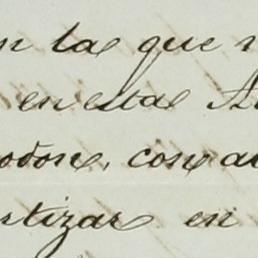 en la que
en esta A
odon, con a
rtizar en